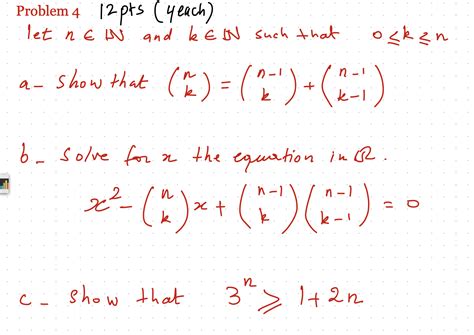 Problem 4 12pts (4each)
let n ∈ ℕ and k ∈ ℕ such that 0 ≤ k ≤ n
a - show that (n k) = (n-1 k) + (n-1 k-1)
b - solve for x the equation in ℝ.
x² - (n k) x + (n-1 k) (n-1 k-1) = 0
c - show that 3ⁿ ≥ 1 + 2n